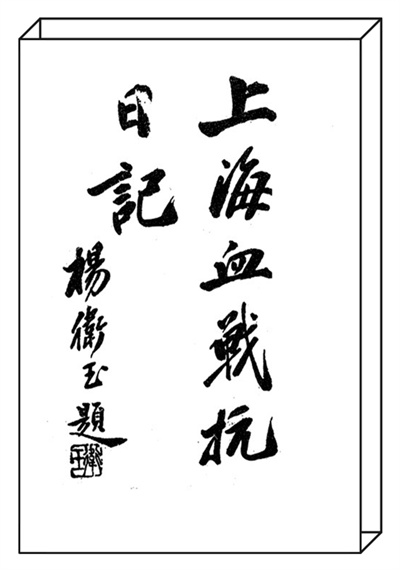 上海血戰抗
日記
楊衛玉題